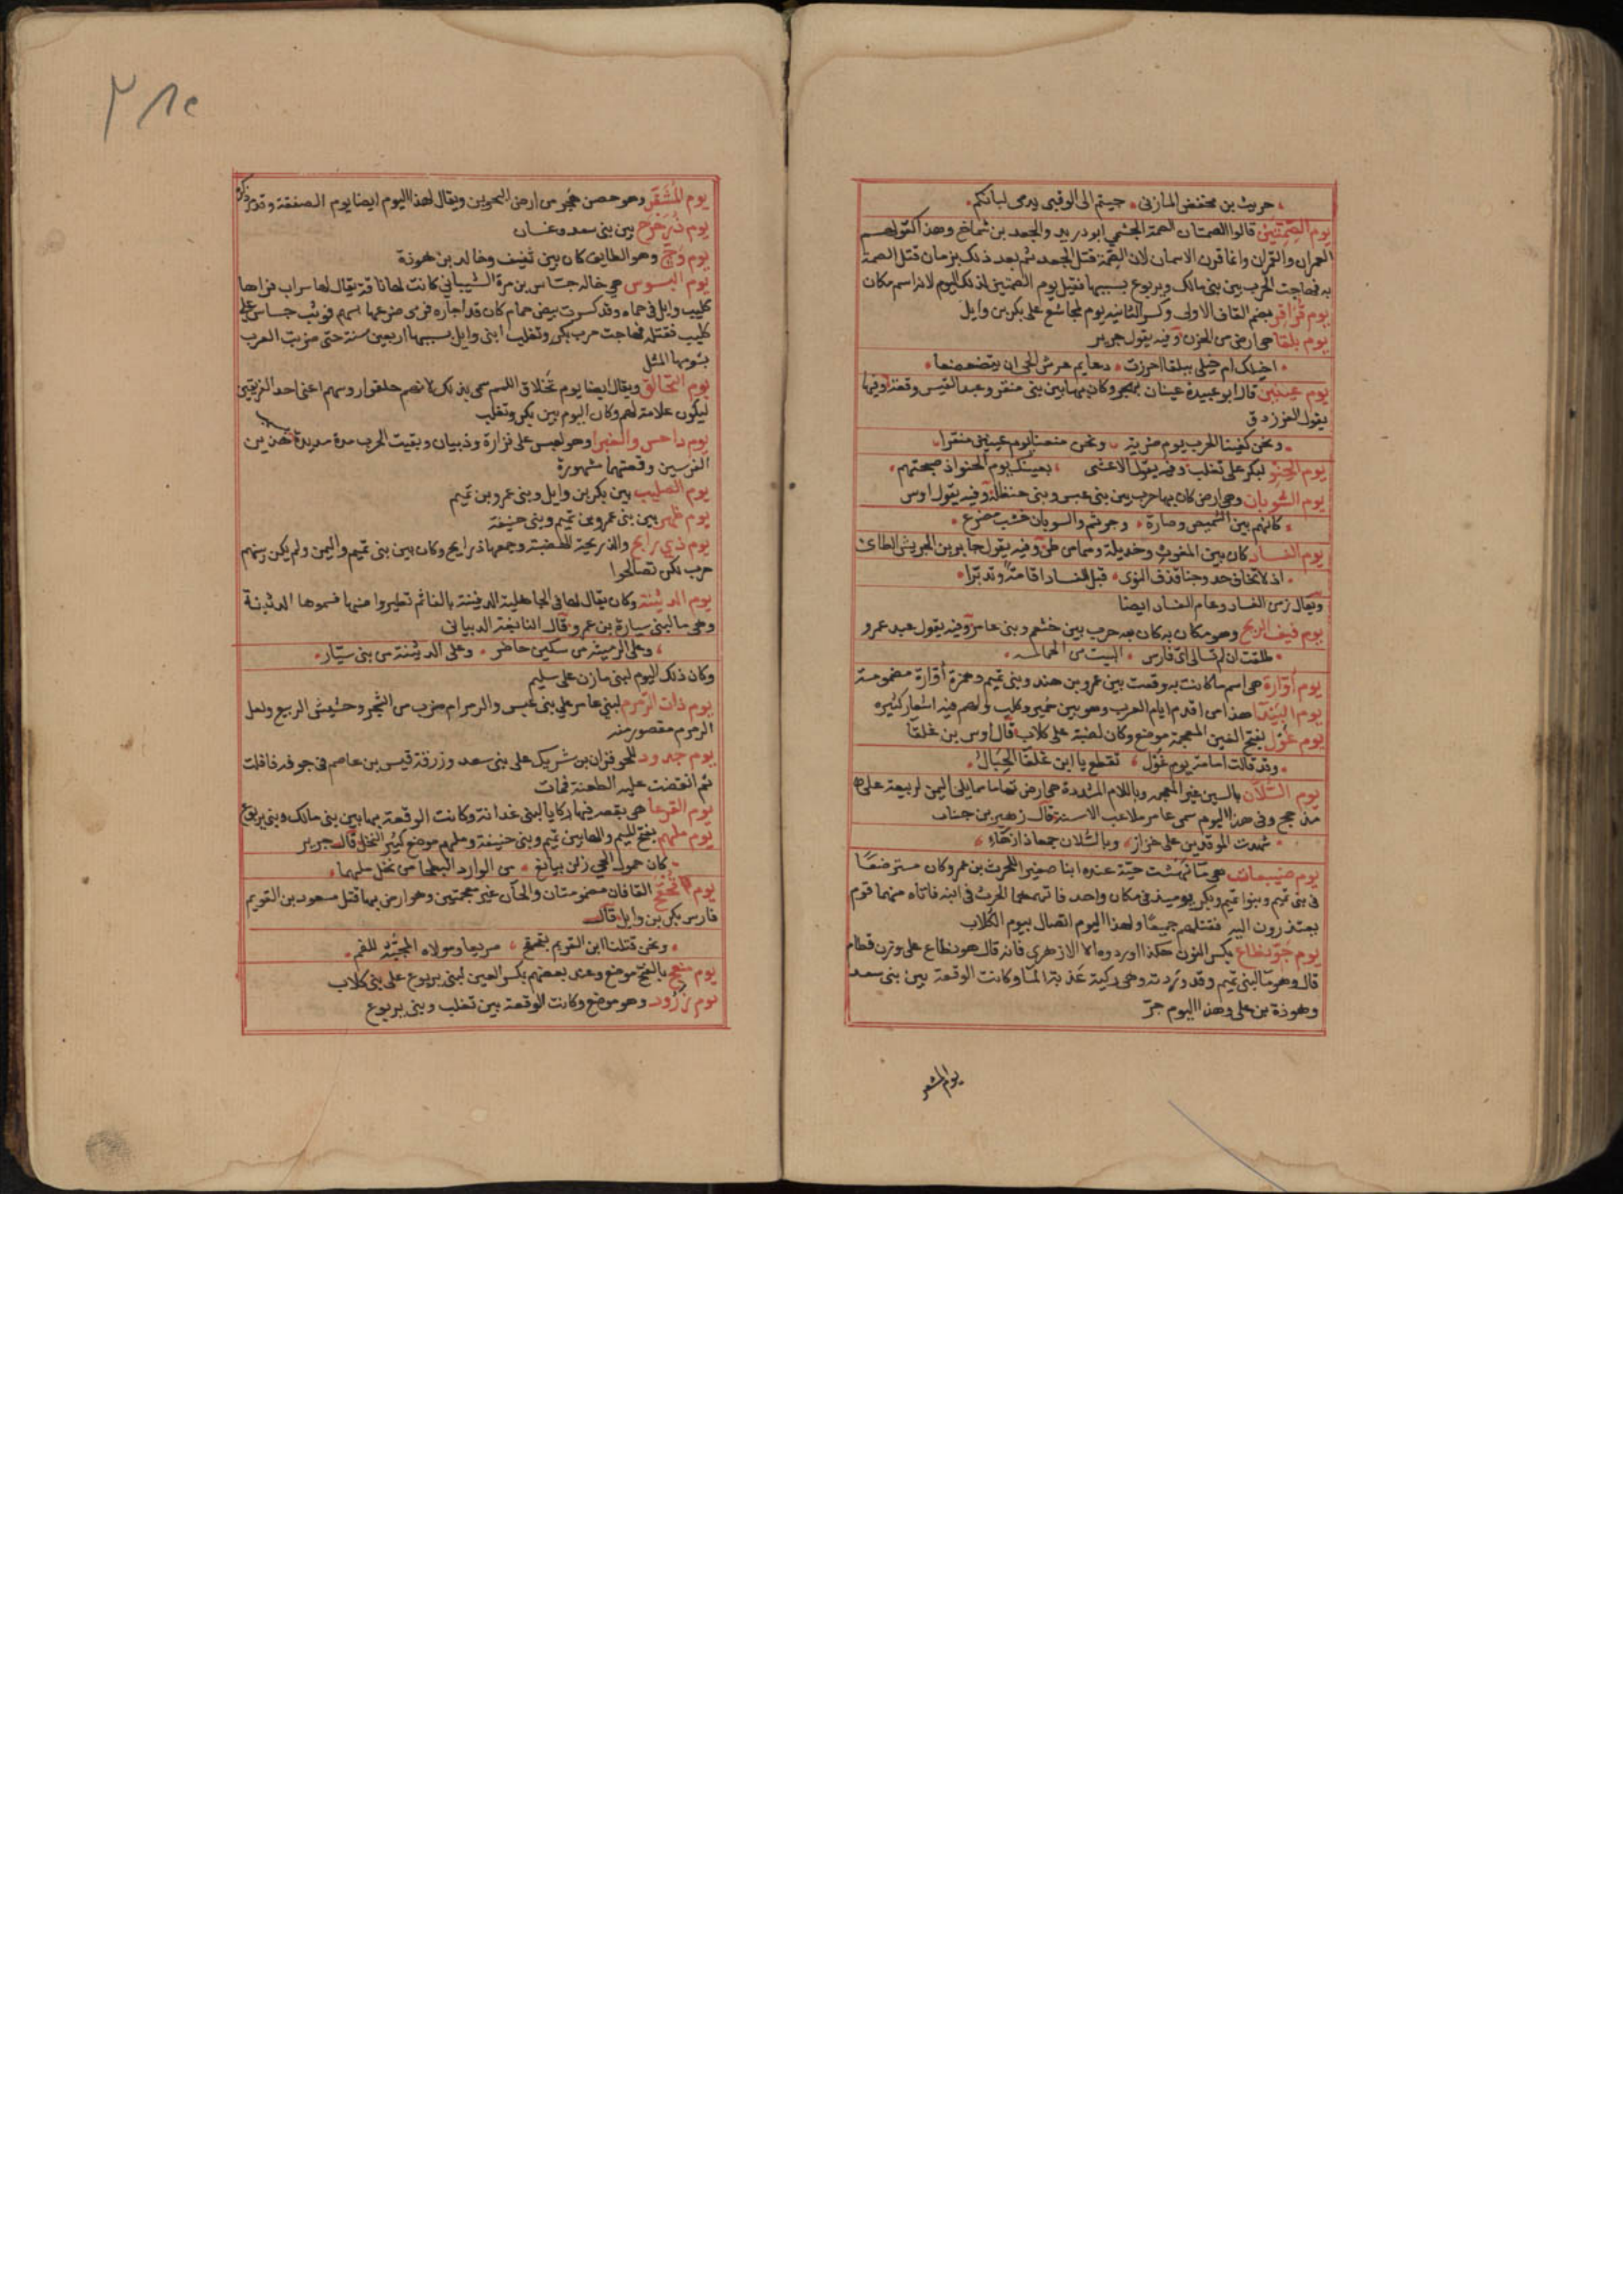 حريث بن محفض المازنى جيتم الى الوقبى يدمى لبانكم
يوم الصمتين قالوا الصمتان الصمة الجشمي ابو دريد والجعد بن شماخ وهذا كقولهم
العمران والقمران وانما قرن الاسمان لان الصمة قتل الجعد ثم بعد ذلك بزمان قتل الصمة
به فهاجت الحرب بين بنى مالك ويربوع بسببهما فقيل يوم الصمتين لذلك اليوم لا انه اسم مكان
يوم قراقر بضم القاف الاولى وكسر الثانية يوم لمجاشع على بكر بن وايل
يوم بلقا هي ارض من الحزن وفيه يقول جرير
اخيلك ام خيلى ببلقا احرزت دعايم عرش الحي ان يتضعضعا
يوم عينين قال ابو عبيدة عينان بهجر وكان بها بين بنى منقر وعبد القيس وقعة وفيها
يقول الفرزدق
ونحن كفينا الحرب يوم ضرية ونحن منعنا يوم عينين منقرا
يوم الحنو لبكر على تغلب وفيه يقول الاعشى بعينك يوم الحنو اذ صبحتهم
يوم السوبان وهي ارض كان بها حرب بين بنى عبس وبنى حنظلة وفيه يقول اوس
كانهم بين الشميص وصارة وجرثم والسوبان خشب مصرع
يوم الفساد كان بين الغوث وجديلة وهما من طي وفيه يقول جابر بن الحريش الطائ
اذ لا تخاف حدوجنا قذف النوى قبل الفساد اقامة وتديرا
ويقال زمن الفساد وعام الفساد ايضا
يوم فيف الريح وهو مكان به كان فيه حرب بين خثعم وبنى عامر وفيه يقول عبد عمرو
طلقت ان لم تسالى اى فارس البيت من الحماسه
يوم اوارة هي اسم ما كانت به وقعت بين عمرو بن هند وبنى تميم وهمزة أوارة مضمومة
يوم البيدا هذا من اقدم ايام العرب وهو بين حمير وكلب ولهم فيه اشعار كثيره
يوم غول بفتح الغين المعجمة موضع وكان لضبة على كلاب قال اوس بن غلفا
وقد قالت امامة يوم غول تقطع يا ابن غلفا الحبال
يوم السلان بالسين غير المعجمه وباللام المشددة هي ارض تهامة مما يلى اليمن لربيعة على
مذحج وفى هذا اليوم سمى عامر ملاعب الاسنة قال زهير بن جناب
شهدت الموقدين على خزاز وبالسلان جمعا ذا زهاء
يوم ضنيبعات هي ما نهشت حية عنده ابنا صغيرا للحرث بن عمرو وكان مسترضعا
فى بنى تميم وبنوا تميم وبكر يوميذ فى مكان واحد فاتهمهما الحرث فى ابنه فاتاه منهما قوم
يعتذرون اليه فقتلهم جميعا ولهذا اليوم اتصال بيوم الكلاب
يوم جو نطاع بكسر النون هكذا اوردوه الا الازهري فانه قال هو نطاع على وزن قطام
قال وهو ما لبنى تميم وقد وردته وهى ركية عذبة الما وكانت الوقعة بين بنى سعد
وهوذة بن على وهذا اليوم جر
يوم المشقر
يوم المشقر وهو حصن هجر من ارض البحرين ويقال لهذا اليوم ايضا يوم الصفقة وقد مر ذكره
يوم بين بنى سعد وغسان
يوم وج وهو الطايف كان بين ثقيف وخالد بن هوذة
يوم البسوس هي خالة جساس بن مرة الشيبانى كانت لها ناقة يقال لها سراب فراها
كليب وايل فى حماه وقد كسرت بيض حمام كان قد اجاره فرمى ضرعها بسهم فوثب جساس على
كليب فقتله فهاجت حرب بكر وتغلب ابنى وايل بسببها اربعين سنة حتى ضربت العرب
بشومها المثل
يوم التحالق ويقال ايضا يوم تحلاق اللمم سمى بذلك لانهم حلقوا روسهم اعنى احد الفريقين
ليكون علامة لهم وكان اليوم بين بكر وتغلب
يوم داحس والغبرا وهو لعبس على فزارة وذبيان وبقيت الحرب مدة مديدة لهذين
الفرسين وقصتهما مشهورة
يوم الصليب بين بكر بن وايل وبنى عمرو بن تميم
يوم ظهر بين بنى عمرو بن تميم وبنى حنيفة
يوم ذي ذرايح والذريحة الهضبة وجمعها ذرايح وكان بين بنى تميم واليمن ولم يكن بينهم
حرب بكن تصالحوا
يوم الدثينة وكان يقال لها فى الجاهلية الدفينة بالفا ثم تطيروا منها فسموها الدثينة
وهى ما لبنى سيارة بن عمرو قال النابغة الذبيانى
وعلى الرميثة من سكين حاضر وعلى الدثينة من بنى سيار
وكان ذلك اليوم لبنى مازن على سليم
يوم ذات الرمرم لبني عامر على بنى عبس والرمرام ضرب من الشجر وحشيش الربيع ولعل
الرمرم مقصور منه
يوم جدود للحوفزان بن شريك على بنى سعد وزرقة قيس بن عاصم فى جوفه فافلت
ثم انتقضت عليه الطعنة فمات
يوم القرعا هي بقعة فيها ركايا لبنى غدانة وكانت الوقعة بها بين بنى مالك وبنى يربوع
يوم ملهم بفتح الميم والها بين تميم وبنى حنيفة وملهم موضع كثير النخل قال جرير
كان حمول الحي زلن بيانع من الوارد البطحا من نخل ملهما
يوم القافان مضمومتان والحآن غير معجمتين وهو ارض بها قتل مسعود بن القريم
فارس بكر بن وايل قال
ونحن قتلنا ابن القريم بقحقح صريعا ومولاه المجبّه للفم
يوم منعج بالفتح موضع وعند بعضهم بكسر العين لبنى يربوع على بنى كلاب
يوم زرود وهو موضع وكانت الوقعة بين تغلب وبنى يربوع